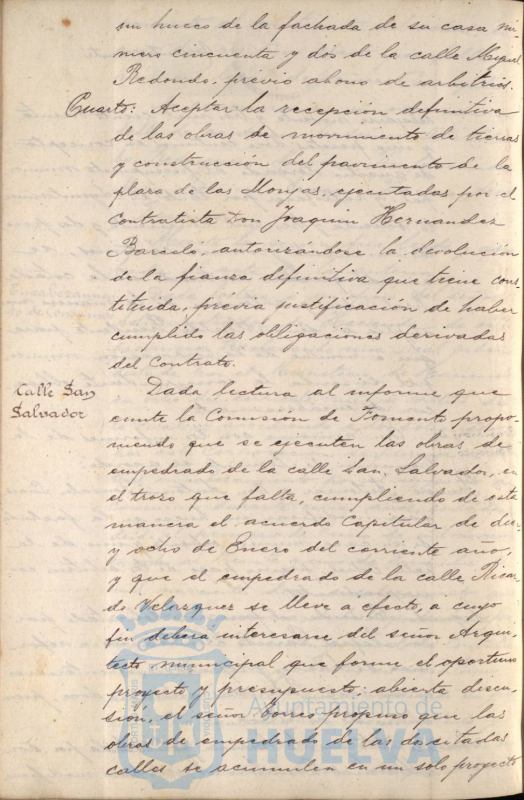 un hueco de la fachada de su casa nú-
mero cincuenta y dos de la calle Miguel
Redondo, previo abono de arbitrios.
Cuarto: Aceptar la recepción definitiva
de las obras de movimiento de tierras
y construcción del pavimento de la
plaza de las Monjas, ejecutadas por el
Contratista Don Joaquín Hernandez
Barceló, autorizándose la devolución
de la fianza definitiva que tiene cons-
tituida, previa justificación de haber
cumplido las obligaciones derivadas
del Contrato.
Calle San
Salvador
Dada lectura al informe que
emite la Comisión de Fomento propo-
niendo que se ejecuten las obras de
empedrado de la calle San Salvador, en
el trozo que falta, cumpliendo de esta
manera el acuerdo Capitular de diez
y ocho de Enero del corriente año,
y que el empedrado de la calle Ricar-
do Velazquez se lleve a efecto, a cuyo
fin deberá interesarse del señor Arqui-
tecto municipal que forme el oportuno
proyecto y presupuesto; abierta discu-
sión, el señor Correo propuso que las
obras de empedrado de las dos citadas
calles se acumulen en un solo proyecto
Ayuntamiento de
HUELVA